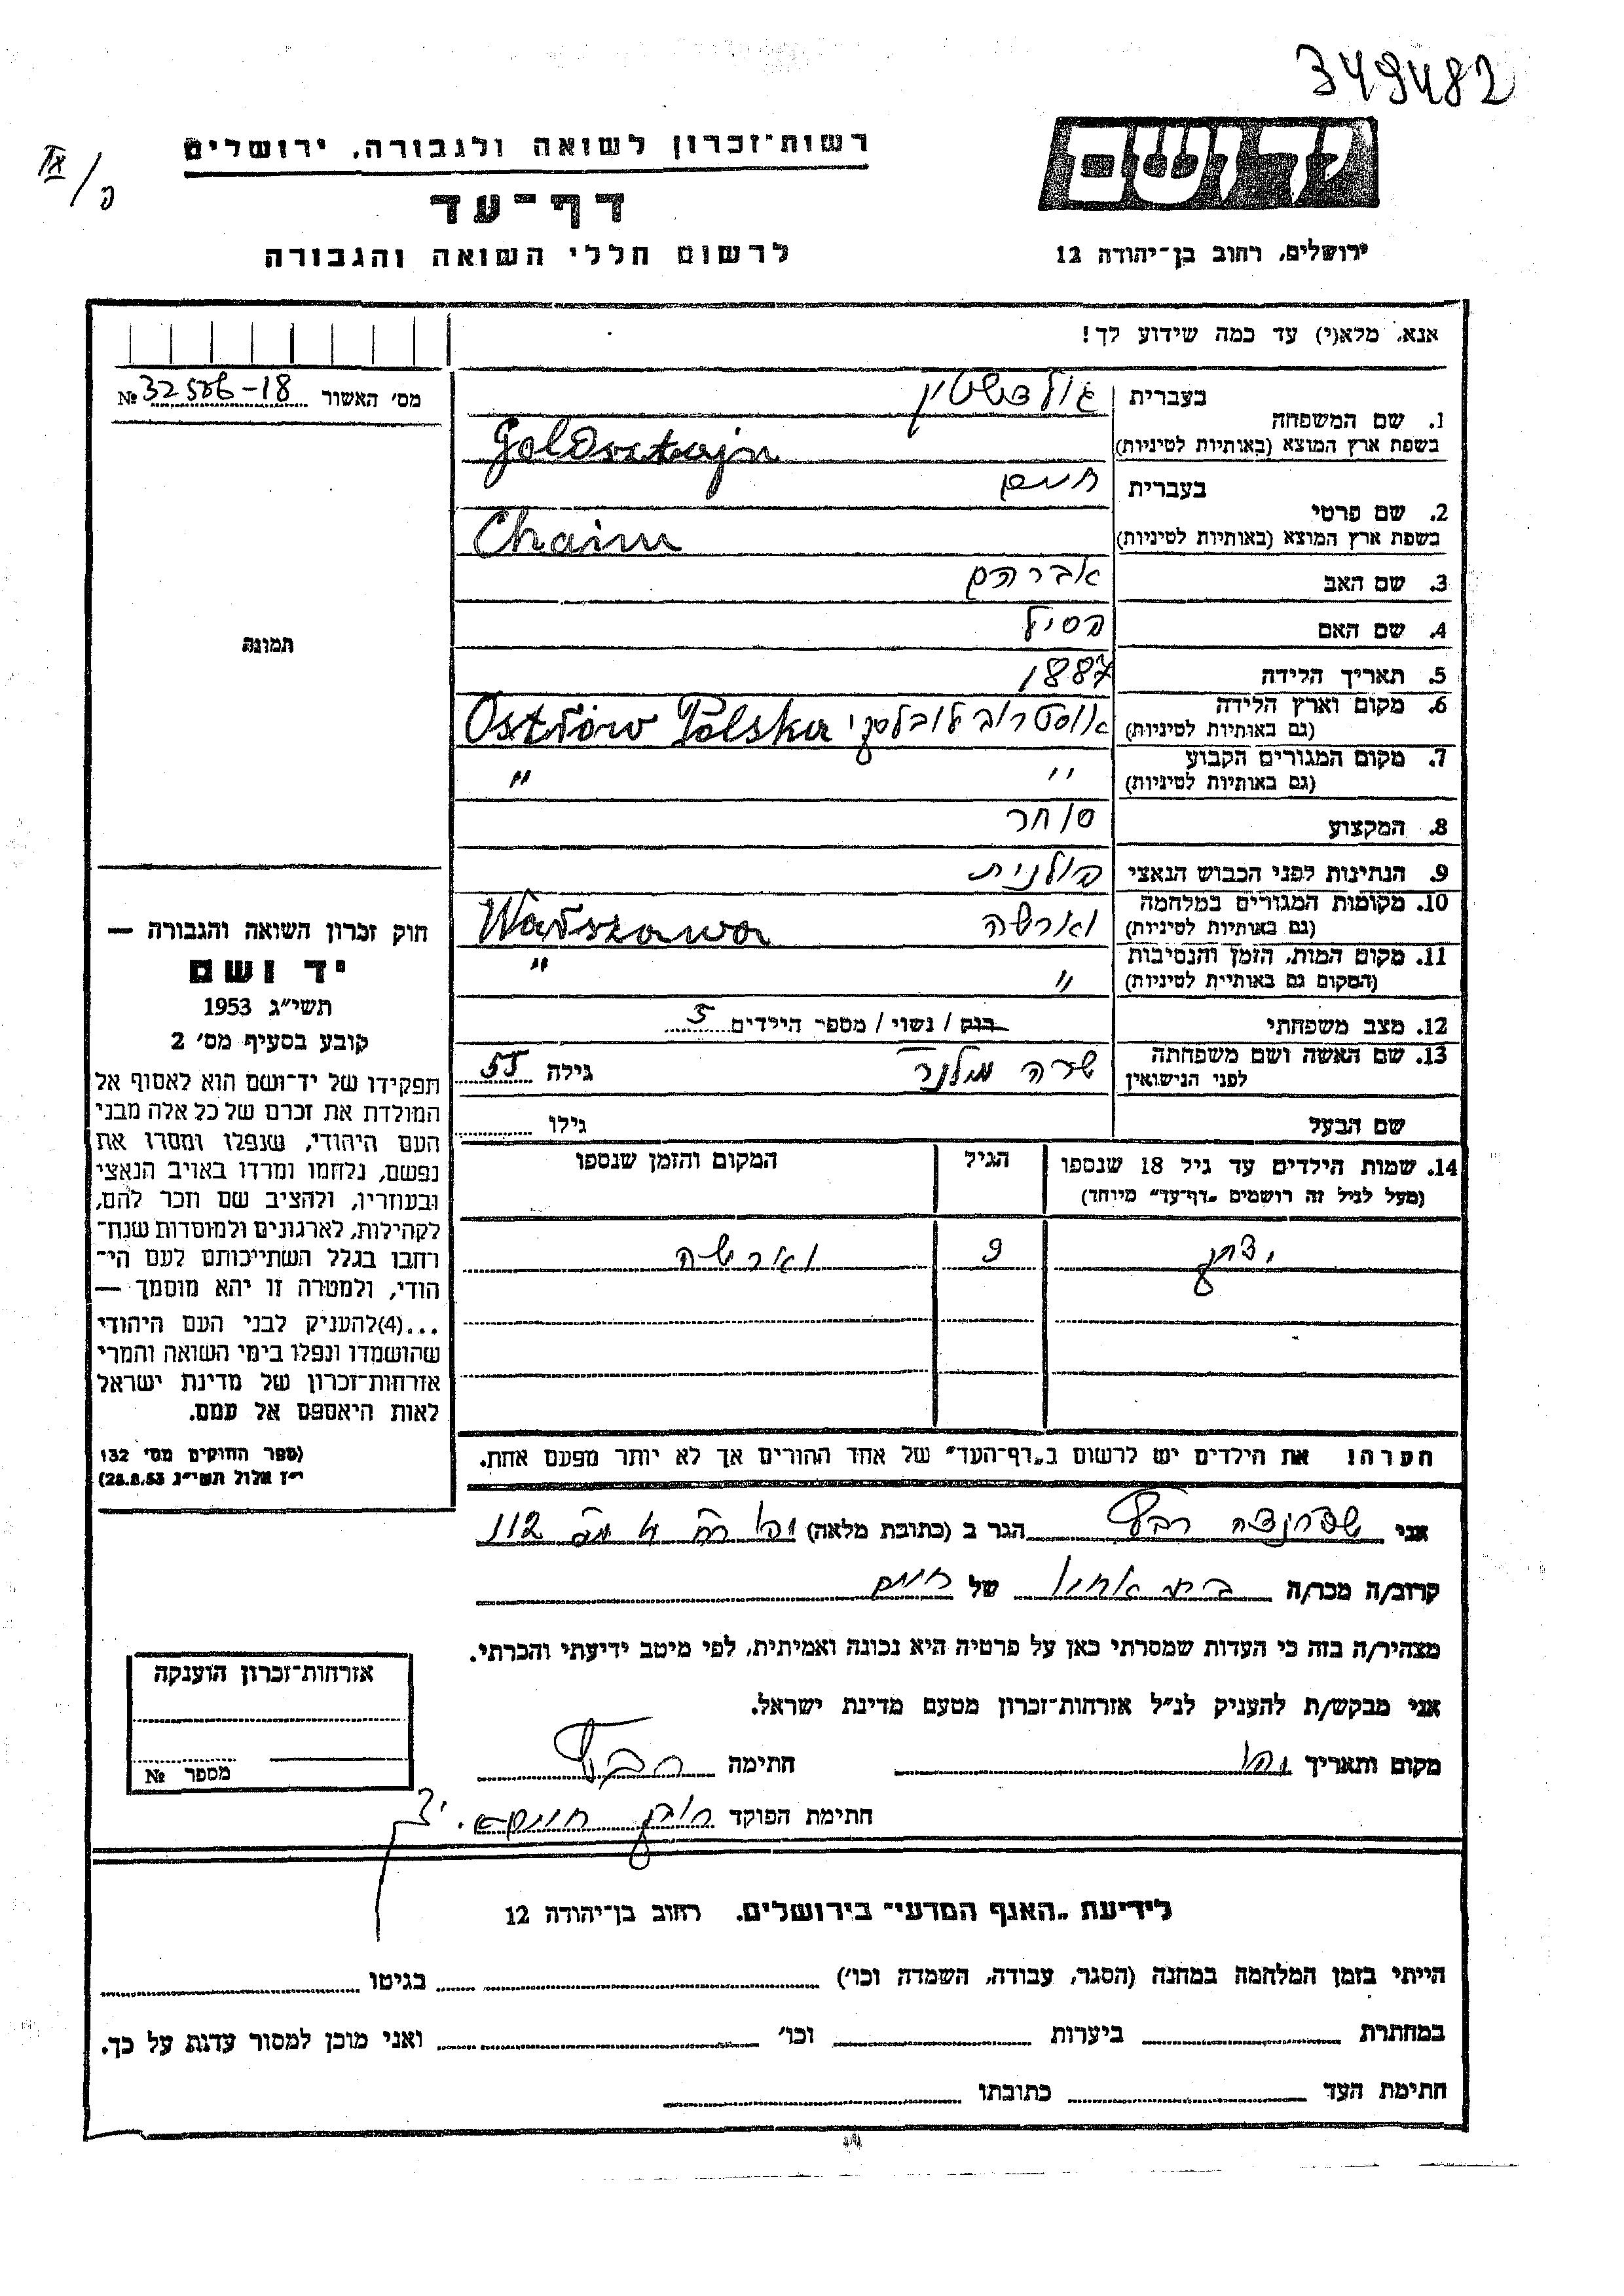 349482
IX / ה
רשות־זכרון לשואה ולגבורה, ירושלים
יד ושם
דף־עד
לרשום חללי השואה והגבורה
ירושלים, רחוב בן־יהודה 12
אנא, מלא(י) עד כמה שידוע לך!
מס׳ האשור № 32586-18
1. שם המשפחה בעברית גולדשטין
בשפת ארץ המוצא (באותיות לטיניות) Goldsztajn
2. שם פרטי בעברית חיים
בשפת ארץ המוצא (באותיות לטיניות) Chaim
3. שם האב אברהם
4. שם האם
5. תאריך הלידה 1887
6. מקום וארץ הלידה אוסטרוב לובלסקי Ostrów Polska
(גם באותיות לטיניות)
7. מקום המגורים הקבוע " "
(גם באותיות לטיניות)
8. המקצוע סוחר
9. הנתינות לפני הכבוש הנאצי פולנית
10. מקומות המגורים במלחמה וארשה Warszawa
(גם באותיות לטיניות)
11. מקום המות, הזמן והנסיבות " "
(המקום גם באותיות לטיניות)
12. מצב משפחתי רוק / נשוי / מספר הילדים 5
13. שם האשה ושם משפחתה שרה גילה 55
לפני הנישואין
שם הבעל גילו
14. שמות הילדים עד גיל 18 שנספו הגיל המקום והזמן שנספו
(מעל לגיל זה רושמים „דף־עד” מיוחד)
9 וארשה
הערה! את הילדים יש לרשום ב„דף־העד” של אחד ההורים אך לא יותר מפעם אחת.
תמונה
חוק זכרון השואה והגבורה —
יד ושם
תשי״ג 1953
קובע בסעיף מס׳ 2
תפקידו של יד־ושם הוא לאסוף אל
המולדת את זכרם של כל אלה מבני
העם היהודי, שנפלו ומסרו את
נפשם, נלחמו ומרדו באויב הנאצי
ובעוזריו, ולהציב שם וזכר להם,
לקהילות, לארגונים ולמוסדות שנח־
רבו בגלל השתייכותם לעם הי־
הודי, ולמטרה זו יהא מוסמך —
...(4) להעניק לבני העם היהודי
שהושמדו ונפלו בימי השואה והמרי
אזרחות־זכרון של מדינת ישראל
לאות היאספם אל עמם.
(ספר החוקים מס׳ 132
י״ז אלול תשי״ג 28.8.53)
אני הגר ב (כתובת מלאה) 112
קרוב/ה מכר/ה בת אחיו של חיים
מצהיר/ה בזה כי העדות שמסרתי כאן על פרטיה היא נכונה ואמיתית, לפי מיטב ידיעתי והכרתי.
אני מבקש/ת להעניק לנ״ל אזרחות־זכרון מטעם מדינת ישראל.
מקום ותאריך חתימה
חתימת הפוקד
אזרחות־זכרון הוענקה
מספר №
לידיעת „האגף המדעי” בירושלים, רחוב בן־יהודה 12
הייתי בזמן המלחמה במחנה (הסגר, עבודה, השמדה וכו׳) בגיטו
במחתרת ביערות וכו׳ ואני מוכן למסור עדות על כך.
חתימת העד כתובתו